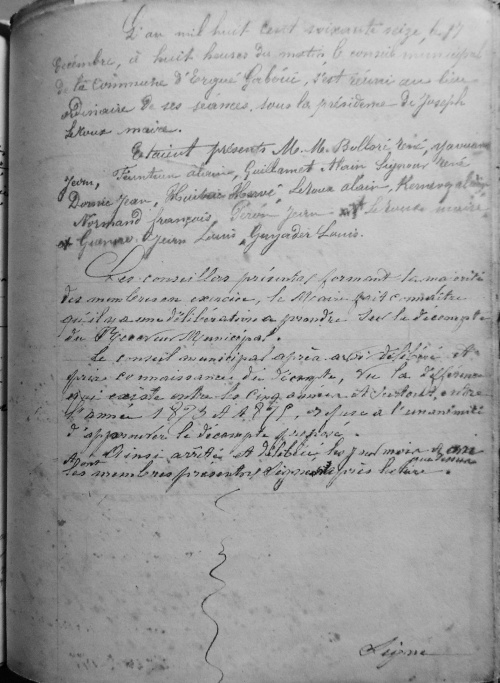 L'an mil huit cent soixante seize, le 17
Décembre, à huit heures du matin le conseil municipal
de la commune d'Ergué Gabéric, s'est réuni au lieu
ordinaire de ses séances, sous la présidence de Joseph
Le Roux maire.
Etaient présents M.M. Bolloré René,
Jean, Guillamet Alain Signour René
Jean, Hervé Le Roux alain,
Normand françois, Jean Le Roux maire
Jean Louis, Guyader Louis.
Les conseillers présents formant la majorité
des membres en exercice, le Maire fait connaître
qu'il y a une délibération a prendre sur le decompte
du Receveur Municipal.
Le conseil municipal après avoir délibéré et
pris connaissance du décompte, vu la différence
qui existe entre les cinq années et surtout entre
l'année 1873 et refuse a l'unanimité
d'approuver le décompte
Ainsi arrêté et délibéré les jour mois et an
que dessus
Ayant les membres présents signé après lecture.